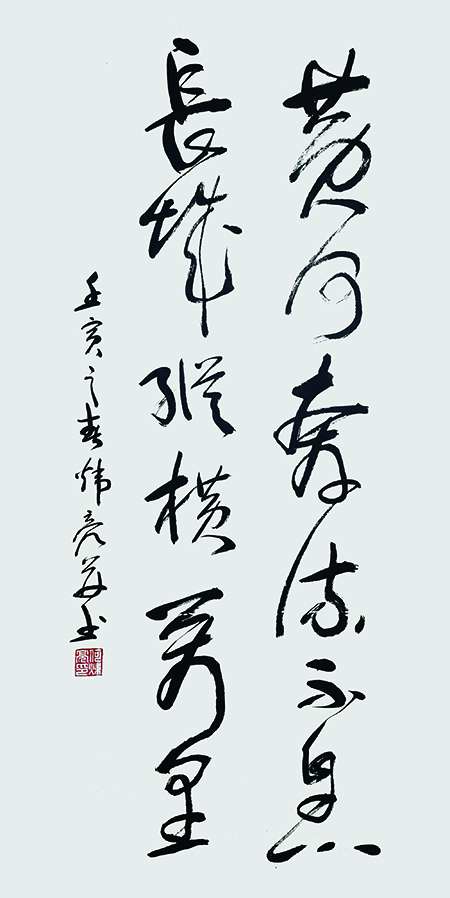 黄河奔流不息
長城縱橫萬里
壬寅之春煒亮書